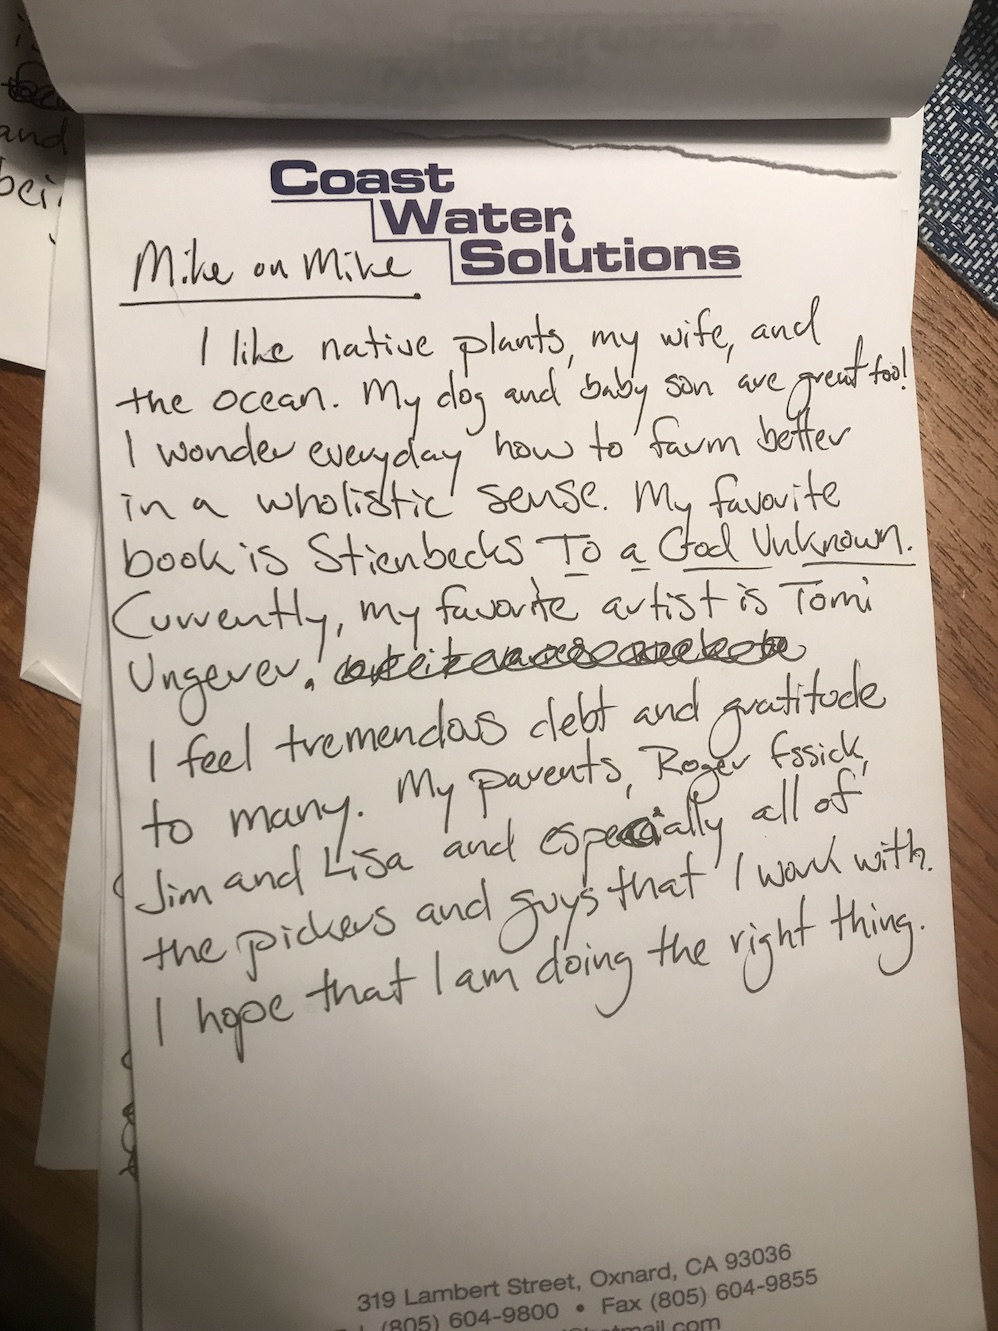 and
bei
Coast
Water
Solutions
Mike on Mike
I like native plants, my wife, and
the ocean. My dog and baby son are great too!
I wonder everyday how to farm better
in a wholistic sense. My favorite
book is Stienbecks To a God Unknown.
Currently, my favorite artist is Tomi
Ungerer.
I feel tremendous debt and gratitude
to many. My parents, Roger Essick,
Jim and Lisa and especially all of
the pickers and guys that I work with.
I hope that I am doing the right thing.
319 Lambert Street, Oxnard, CA 93036
(805) 604-9800 • Fax (805) 604-9855
hotmail.com